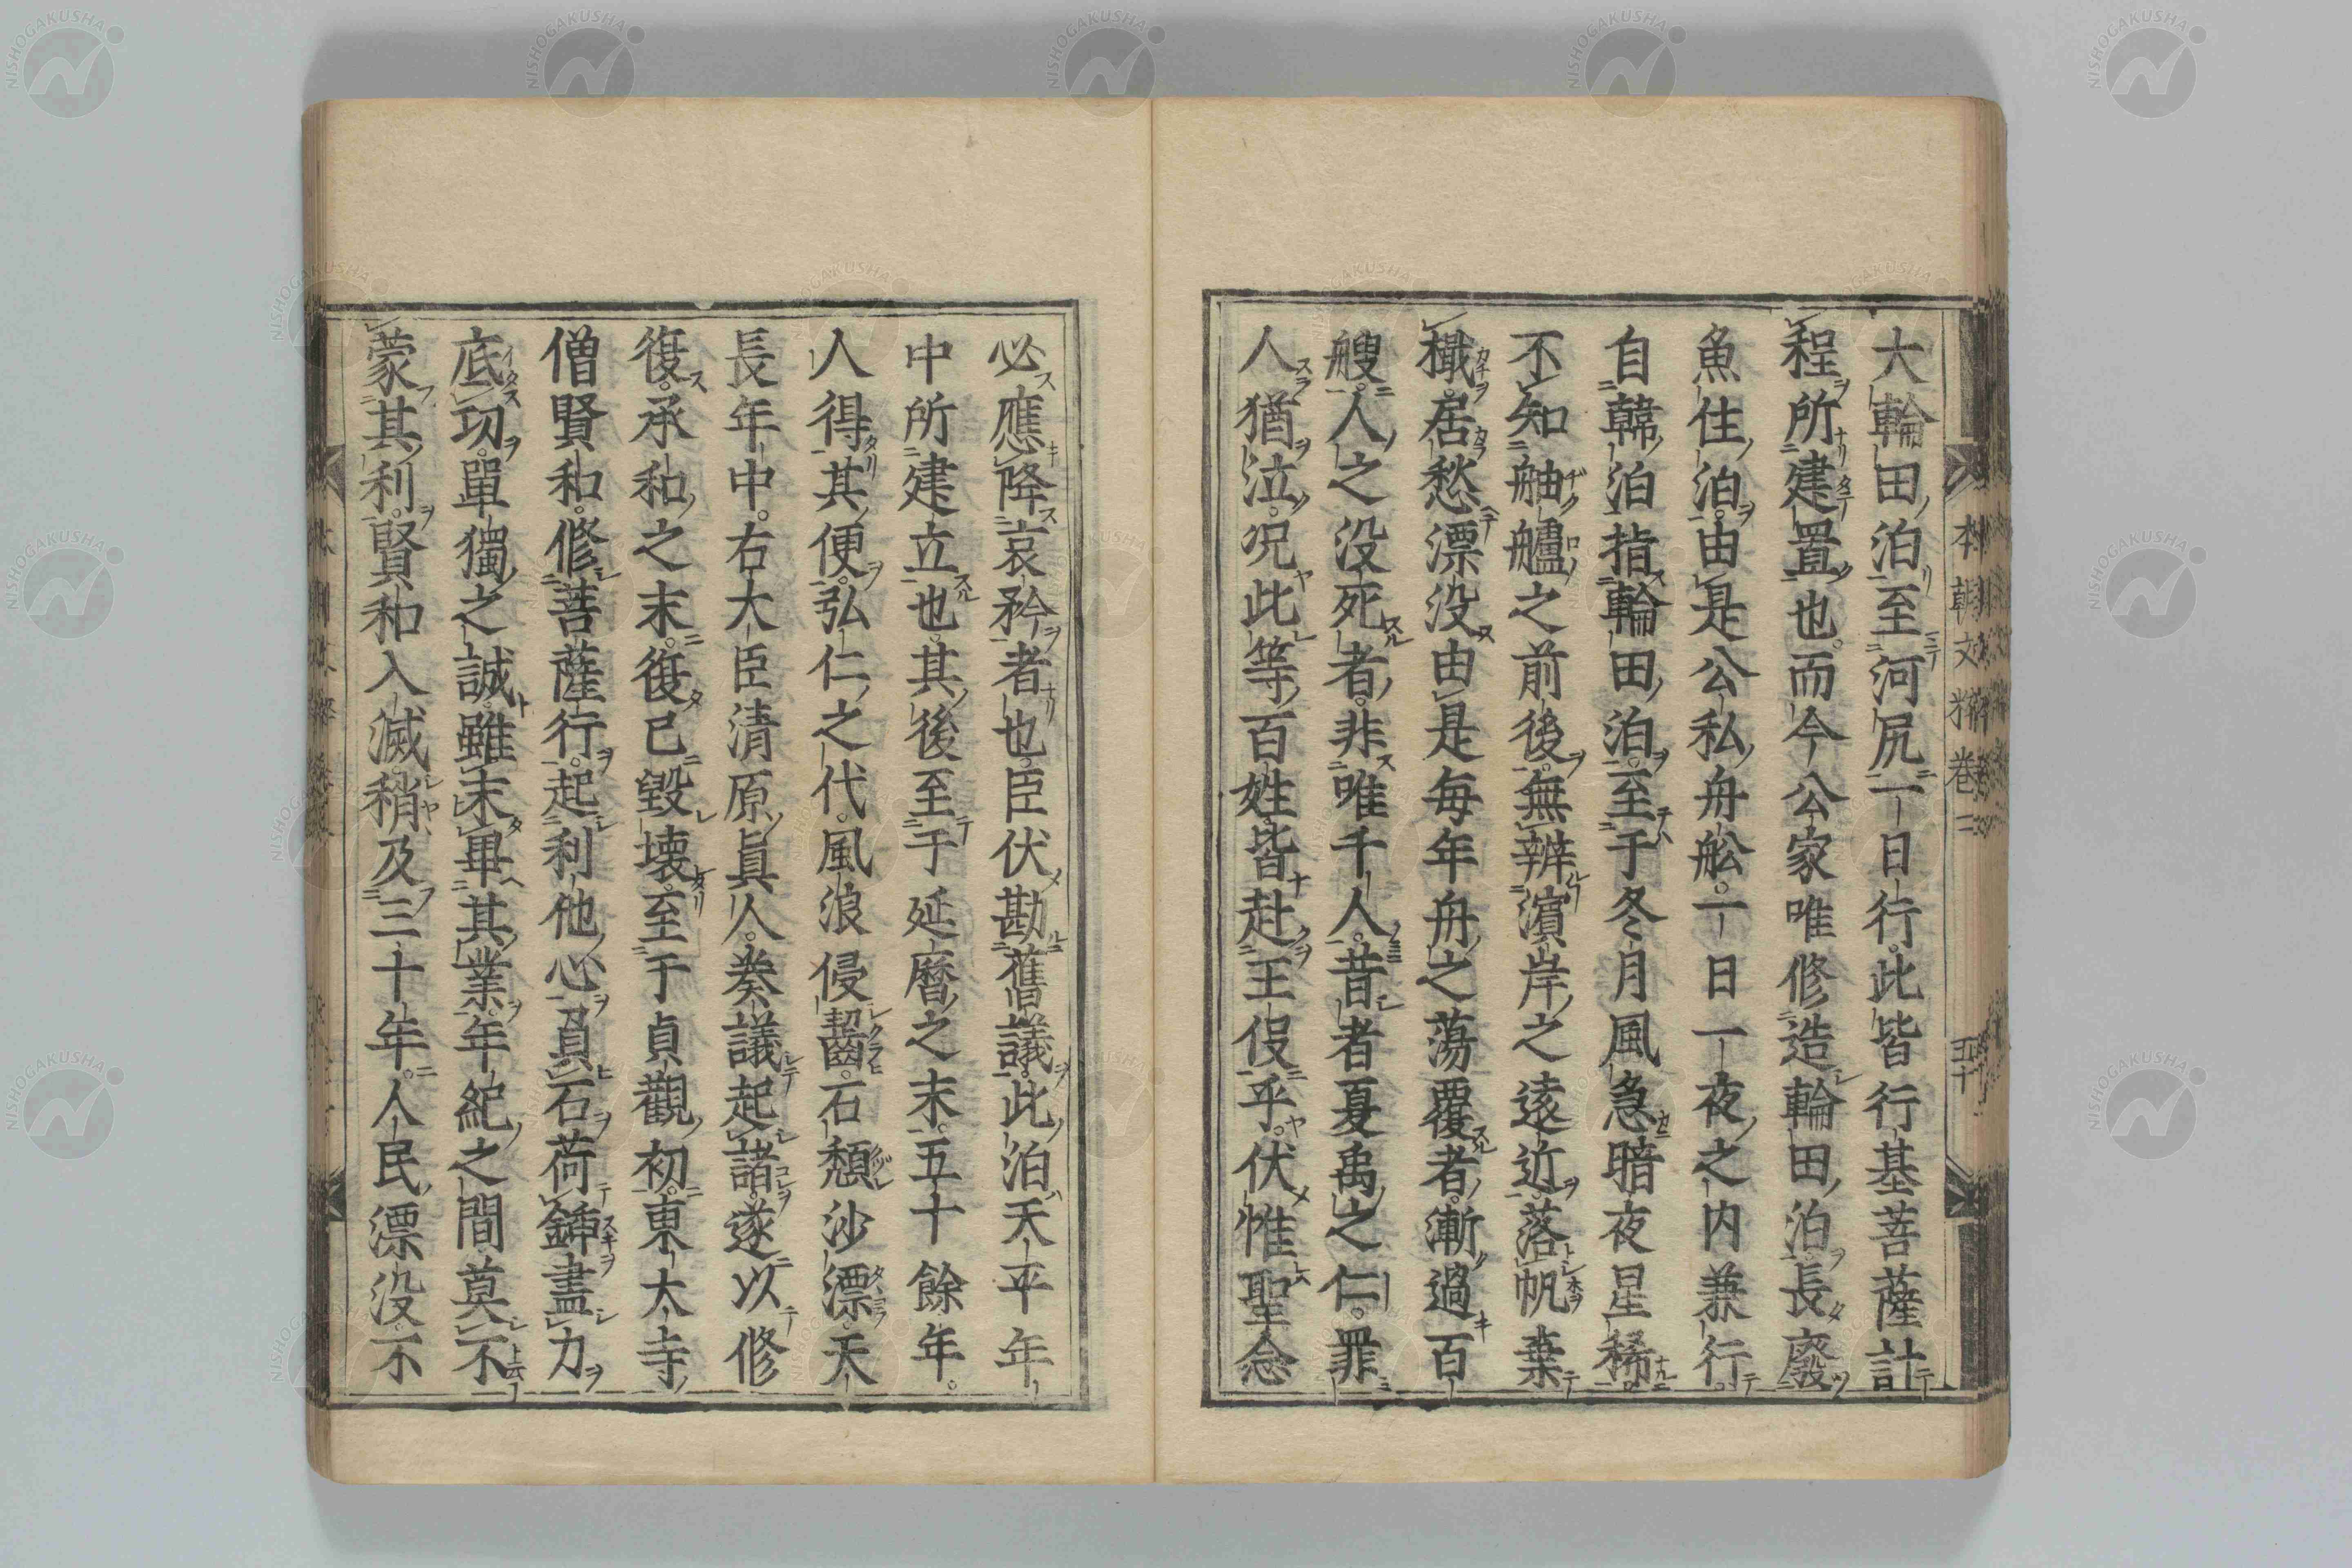 大輪田泊至河尻一日行此皆行基菩薩計
程所建置也而今公家唯修造輪田泊長廢
魚住泊由是公私舟舩一日一夜之内兼行
自韓泊指輪田泊至于冬月風急暗夜星稀
不知舳艫之前後無辨濱岸之遠近落帆棄
檝居愁漂没由是每年舟之蕩覆者漸過百
艘人之没死者非唯千人昔者夏禹之仁罪
人猶泣况此等百姓皆赴王役乎伏惟聖念
必應降哀矜者也臣伏勘舊議此泊天平年
中所建立也其後至于延曆之末五十餘年
人得其便弘仁之代風浪侵齧石頽沙漂天
長年中右大臣清原眞人奏議起請遂以修
復承和之末復已毀壞至于貞觀初東大寺
僧賢和修菩薩行起利他心負石荷鍤盡力
底功單獨之誠雖未畢其業年紀之間莫不
蒙其利賢和入滅稍及三十年人民漂没不
本朝文粹卷二
五十
NISHOGAKUSHA